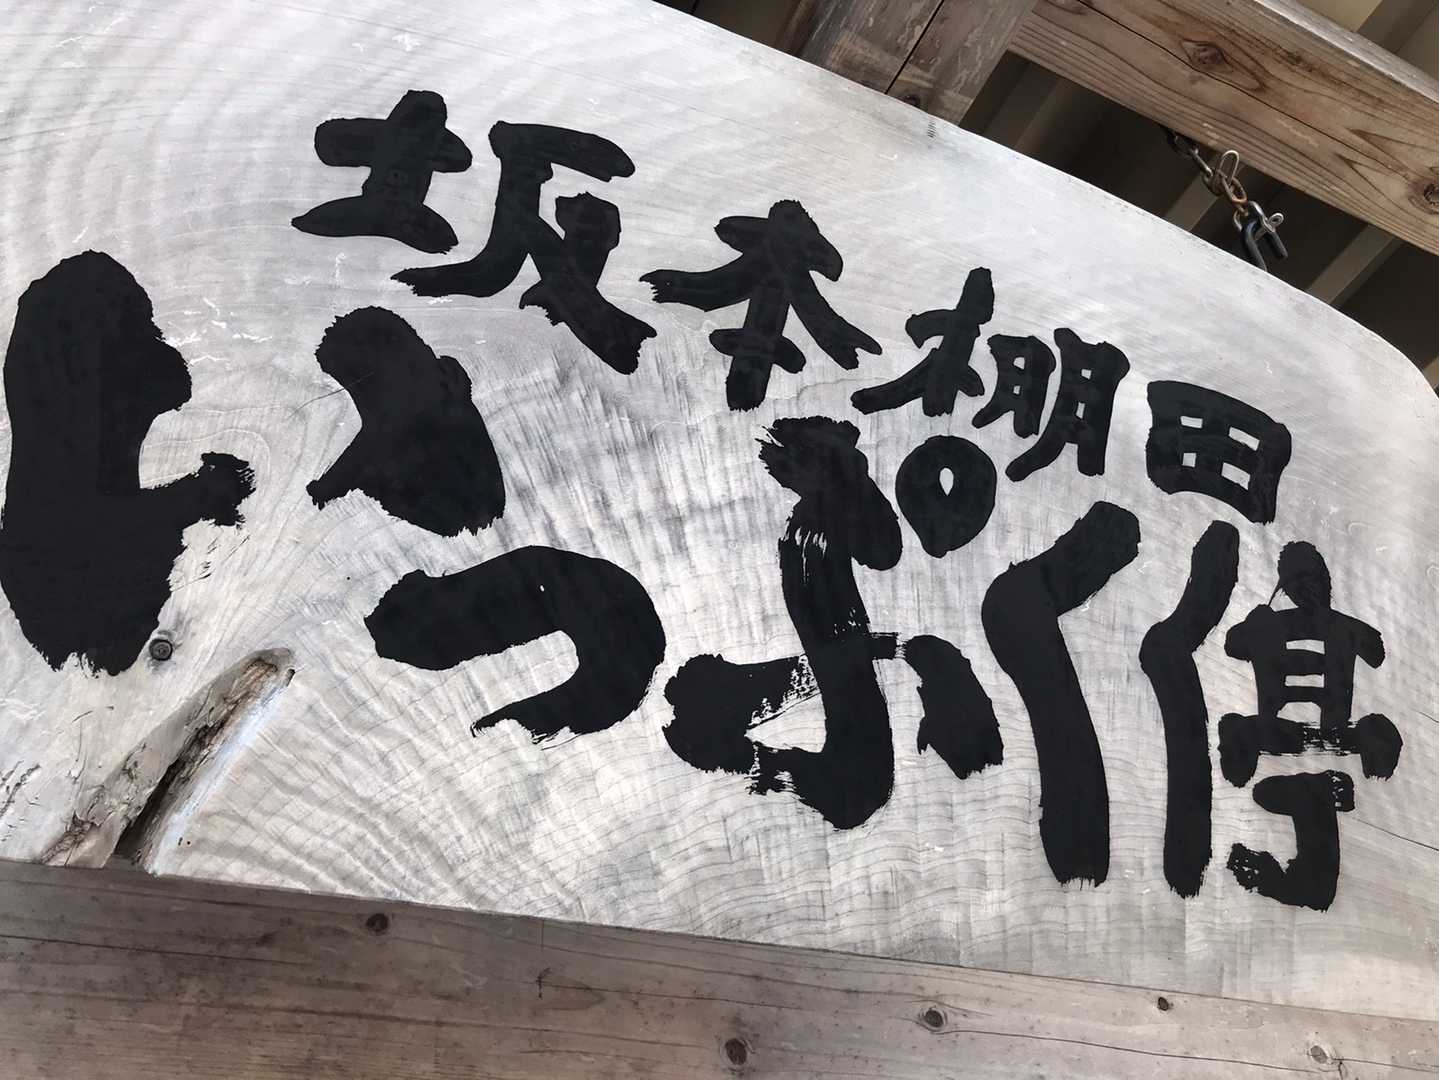 坂本棚田
いっぷく停